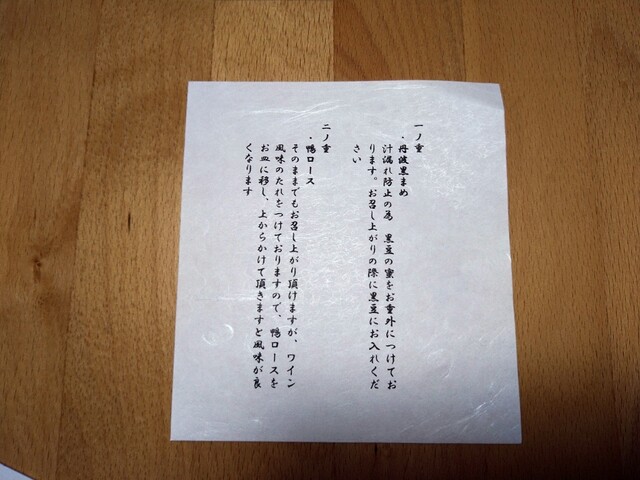 一ノ重
・丹波黒まめ
汁漏れ防止の為　黒豆の蜜をお重外につけてお
ります。お召し上がりの際に黒豆にお入れくだ
さい
二ノ重
・鴨ロース
そのままでもお召し上がり頂けますが、ワイン
風味のたれをつけておりますので、鴨ロースを
お皿に移し、上からかけて頂きますと風味が良
くなります